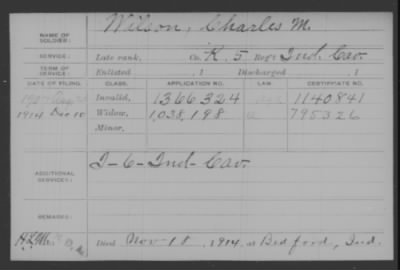 NAME OF SOLDIER: Wilson, Charles M.
SERVICE: Late rank, Co. K, 5 Reg't Ind. Cav.
TERM OF SERVICE: Enlisted , 1 Discharged , 1
DATE OF FILING. CLASS. APPLICATION NO. LAW. CERTIFICATE NO.
Invalid, 1366324 1140841
1914 Dec 10 Widow, 1,038,198 795326
Minor,
ADDITIONAL SERVICES: I-6-Ind-Cav.
REMARKS:
Died Nov-18, 1914, at Bedford, Ind.